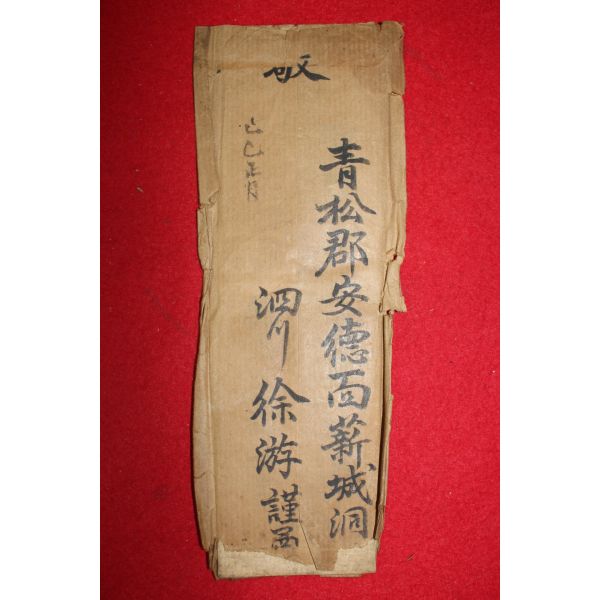 青松郡安德面薪城洞
泗川 徐游 謹函
己巳正月